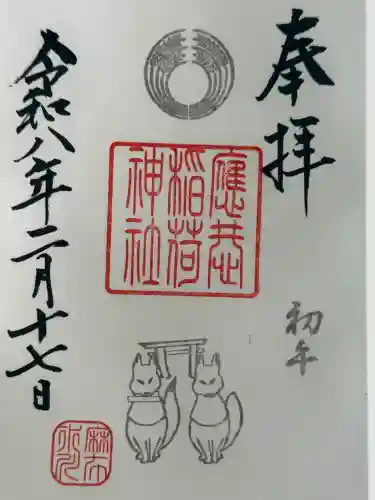 奉拝
初午
應恭
稲荷
神社
令和八年二月十七日
麻布